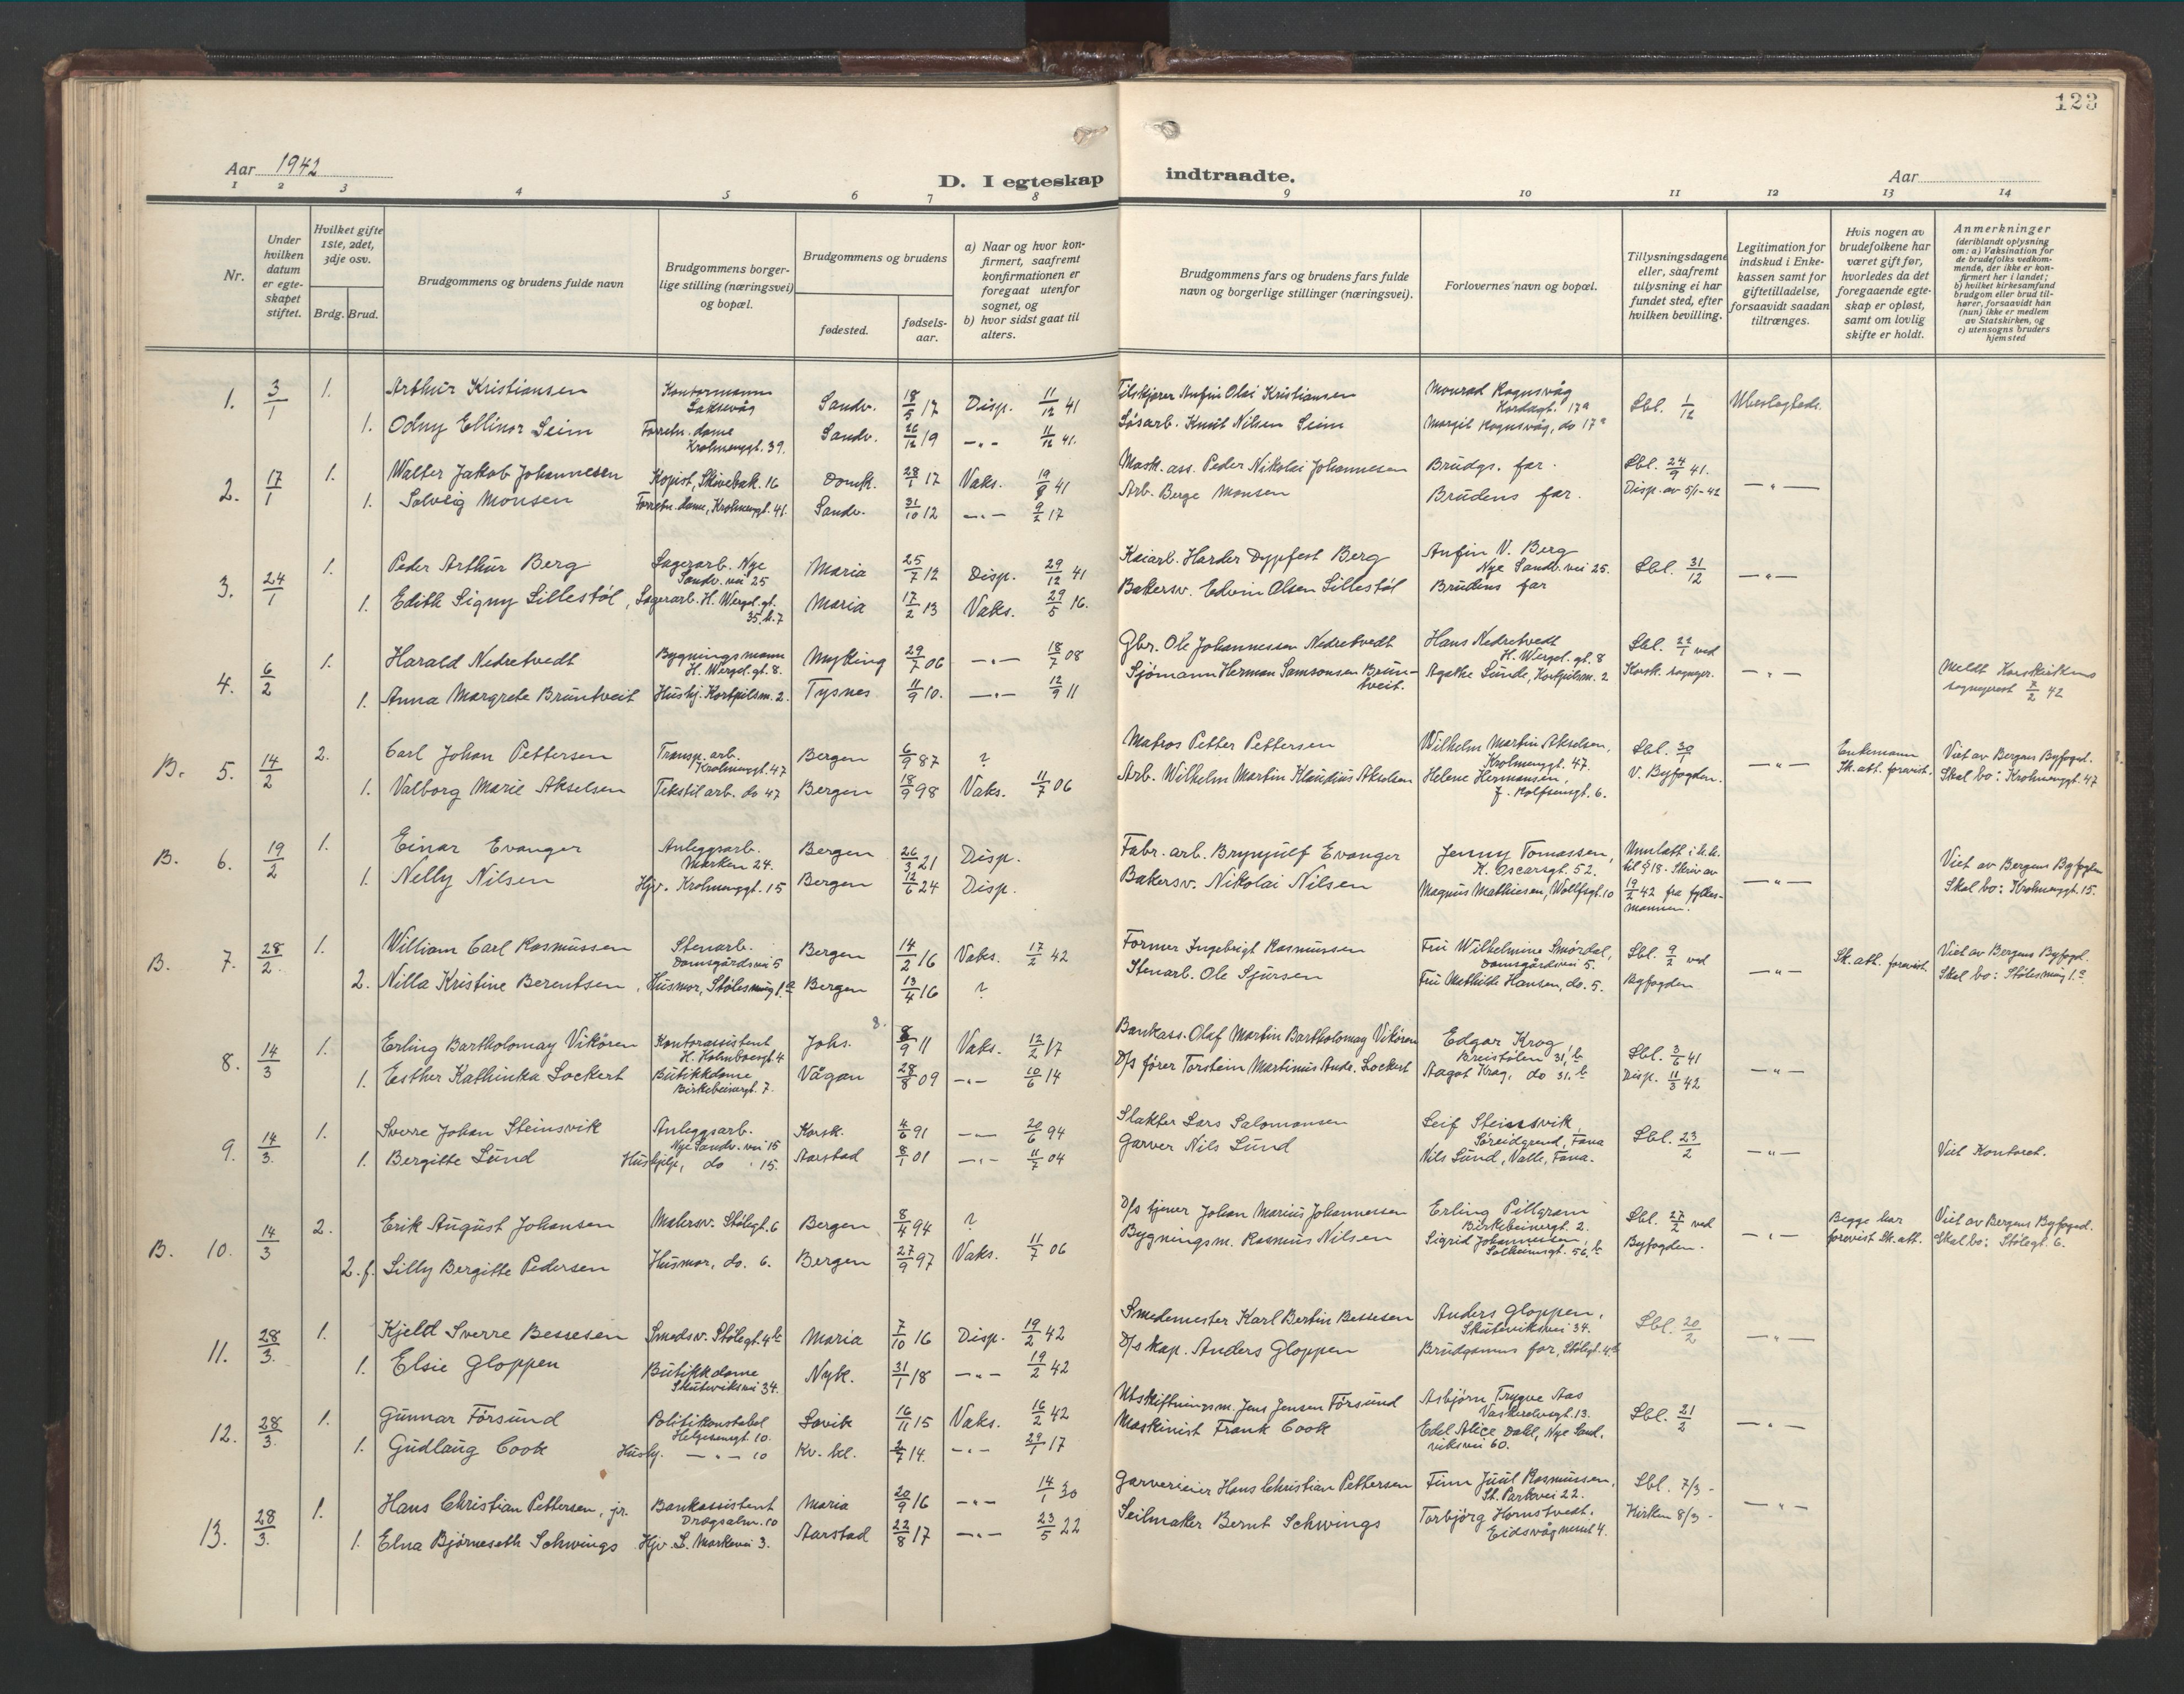 123
Aar 1942
D. I egteskap indtraadte.
Aar
1 2 3 4 5 6 7 8 9 10 11 12 13 14
Nr.
Under hvilken datum er egte-skapet stiftet.
Hvilket gifte 1ste, 2det, 3dje osv.
Brdg. Brud.
Brudgommens og brudens fulde navn
Brudgommens borger-lige stilling (næringsvei) og bopæl.
Brudgommens og brudens
fødested.
fødsels-aar.
a) Naar og hvor kon-firmert, saafremt konfirmationen er foregaat utenfor sognet, og
b) hvor sidst gaat til alters.
Brudgommens fars og brudens fars fulde navn og borgerlige stillinger (næringsvei).
Forlovernes navn og bopæl.
Tillysningsdagene eller, saafremt tillysning ei har fundet sted, efter hvilken bevilling.
Legitimation for indskud i Enke-kassen samt for giftetilladelse, forsaavidt saadan tiltrænges.
Hvis nogen av brudefolkene har været gift før, hvorledes da det foregaaende egte-skap er opløst, samt om lovlig skifte er holdt.
Anmerkninger (deriblandt oplysning om: a) Vaksination for de brudefolks vedkom-mende, der ikke er kon-firmert her i landet; b) hvilket kirkesamfund brudgom eller brud til-hører, forsaavidt han (hun) ikke er medlem av Statskirken, og c) utensogns bruders hjemsted
1. 3/1 1. Arthur Kristiansen Kontormann Laksevåg Sandv. 18/5 17 Disp. 11/12 41 Arnfin Olai Kristiansen Monrad Rognsvåg Kordagt. 17a Lbl. 1/12 Ubeslegtede.
1. Odny Ellinor Seim Forretn.dame Krohnengt. 39. Sandv. 26/12 19 -"- 11/12 41. Løsarb. Knut Nilsen Seim Margit Rognsvåg, do 17a
2. 17/1 1. Walter Jakob Johannesen Kopist, Skivebak. 16 Domk. 28/1 17 Vaks. 19/8 41 Mask.ass. Peder Nikolai Johannesen Brudgs. far. Lbl. 24/9 41. -"-
1. Solveig Monsen Forretn.dame, Krohnengt. 41. Sandv. 31/10 12 -"- 9/2 17 Arb. Berge Monsen Brudens far. Disp. av 5/1-42
3. 24/1 1. Peder Arthur Berg Lagerarb. Nye Sandv. vei 25 Maria 25/7 12 Disp. 29/12 41 Kaiarb. Harder Dypfest Berg Anfin V. Berg Nye Sandv. vei 25. Lbl. 31/12 -"-
1. Edith Signy Lillestøl, Lagerarb. H. Wergel. gt. 35. b. 7 Maria 17/2 13 Vaks. 29/5 16. Bakersv. Edvin Olsen Lillestøl Brudens far
4. 6/2 1. Harald Nedretvedt Bygningsmann H. Wergel. gt. 8. Myking 29/7 06 -"- 18/7 08 Gbr. Ole Johannessen Nedretvedt Hans Nedretvedt H. Wergel. gt. 8 Lbl. 21/1 ved -"- Meldt Korskirkens
1. Anna Margrete Bruntveit Hushj. Kortpilsm. 2. Tysnes 11/9 10. -"- 12/9 11 Sjømann Herman Samsonsen Brun-tveit. Agathe Lunde, Kortpilsm. 2 Korsk. sogneprest 7/2 42
B. 5. 14/2 2. Carl Johan Pettersen Transp. arb. Krohnengt. 47 Bergen 6/9 87 ? Matros Petter Pettersen Wilhelm Martin Akselsen, Krohnengt. 47. Lbl. 30/1 -"- Enkemann Viet av Bergens Byfogd.
1. Valborg Marie Akselsen Tekstilarb. do 47 Bergen 18/9 98 Vaks. 11/7 06 Arb. Wilhelm Martin Klaudius Akselsen Helene Hermansen, J. Rolfsensgt. 6. v. Byfogden. Sk. att. forevist. Skal bo: Krohnengt. 47
B. 6. 19/2 1. Einar Evanger Anleggsarb. Marken 24. Bergen 26/3 21 Disp. Fabr. arb. Brynjulf Evanger Jenny Tomassen, K. Oscarsgt. 52. Unnlatt i h.h. til § 18. Skriv av -"- Viet av Bergens Byfogden
1. Nelly Nilsen Hjv. Krohnengt. 15 Bergen 12/6 24 Disp. Bakersv. Nikolai Nilsen Magnus Mathiesen, Wolffsgt. 10 19/2 42 fra fylkes-mannen. Skal bo: Krohnengt. 15.
B. 7. 28/2 1. William Carl Rasmussen Stenarb. Damsgårdsvei 5 Bergen 14/2 16 Vaks. 17/2 42 Former Ingebrigt Rasmussen Fru Wilhelmine Smørdal, Damsgårdsvei 5. Lbl. 9/2 ved -"- Sk. att. forevist. Viet av Bergens Byfogd.
2. Nilla Kristine Berentsen, Husmor, Stølesmug 1.a Bergen 13/4 16 ? Stenarb. Ole Sjursen Fru Mathilde Hansen, do. 5. Byfogden Skal bo: Stølesmug 1.a
8. 14/3 1. Erling Bartholomay Vikøren Kontorassistent H. Holmboesgt. 4 Johs. 8. 8/9 11 Vaks. 12/2 17 Bankass. Olaf Martin Bartholomay Vikøren Edgar Krog Breistølen 31.b Lbl. 3/6 41 -"-
1. Esther Kathinka Lockert Butikkdame Birkebeinergt. 7. Vågan 28/8 09 -"- 10/6 14 D/s fører Torstein Martinus Andr. Lockert Aagot Krog, do 31.b Disp. 11/3 42
9. 14/3. 1. Sverre Johan Steinsvik Anleggsarb. Nye Sandv. vei 15 Korsk. 4/6 91 -"- 20/6 94 Slakter Lars Salomonsen Leif Steinsvik, Søreidgrend, Fana Lbl. 23/2 -"- Viet Kontoret.
1. Bergitte Lund Hushjelp, do 15. Aarstad 8/1 01 -"- 11/7 04 Garver Nils Lund Nils Lund, Valle, Fana.
B. 10. 14/3 2. Erik August Johansen Malersv. Stølegt. 6 Bergen 8/4 94 ? D/s tjener Johan Marius Johannessen Erling Pillgram Birkebeinergt. 2. Lbl. 27/2 ved -"- Begge har Viet av Bergens Byfogd.
2. f. Lilly Bergitte Pedersen Husmor, do. 6. Bergen 27/9 97 Vaks. 11/7 06 Bygningsm. Rasmus Nilsen Sigrid Johannessen, Solheimsgt. 56.b Byfogden. forevist Sk. att. Skal bo: Stølegt. 6.
11. 28/3. 1. Kjeld Sverre Bessesen Smedsv. Stølegt. 4b Maria 7/10 16 Disp. 19/2 42 Smedemester Karl Bertin Bessesen Anders Gloppen, Skuteviksvei 34. Lbl. 20/2 -"-
1. Elsie Gloppen Butikkdame Skuteviksvei 34. Nyk. 31/1 18 -"- 19/2 42 D/s kap. Anders Gloppen Brudgomens far, Stølegt. 4b
12. 28/3. 1. Gunnar Førsund Politikonstabel Helgesensgt. 10. Lavik 16/11 15 Vaks. 16/2 42 Utskiftningsm. Jens Jensen Førsund Asbjørn Trygve Aas Vaskerelvsgt. 13. Lbl. 21/2 -"-
1. Gudlaug Cook Hushj. -"- 10 Kv. hel. 2/7 14. -"- 29/1 17 Maskinist Frank Cook Edel Alice Dahl, Nye Sand.viksvei 60.
13. 28/3. 1. Hans Christian Pettersen, jr. Bankassistent Dragsalm. 10 Maria 20/9 16 -"- 14/1 30 Garverieier Hans Christian Pettersen Finn Juul Rasmussen, St. Parkvei 22. Lbl. 7/3 - -"-
1. Elna Bjørneseth Schwings Hjv. L. Markevei 3. Aarstad 22/8 17 -"- 23/5 22 Seilmaker Bernt Schwings Torbjørg Hornstvedt, Eidsvågneset 4. Kirken 8/3 -